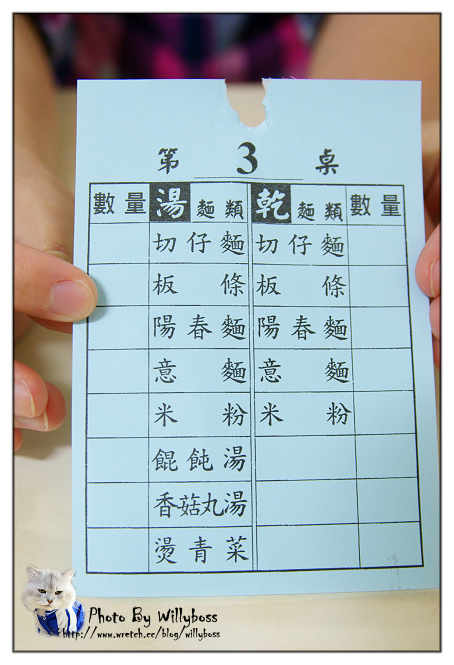 第 3 桌
數量 湯麵類 乾麵類 數量
切仔麵 切仔麵
板條 板條
陽春麵 陽春麵
意麵 意麵
米粉 米粉
餛飩湯
香菇丸湯
燙青菜
Photo By Willyboss
http://www.wretch.cc/blog/willyboss